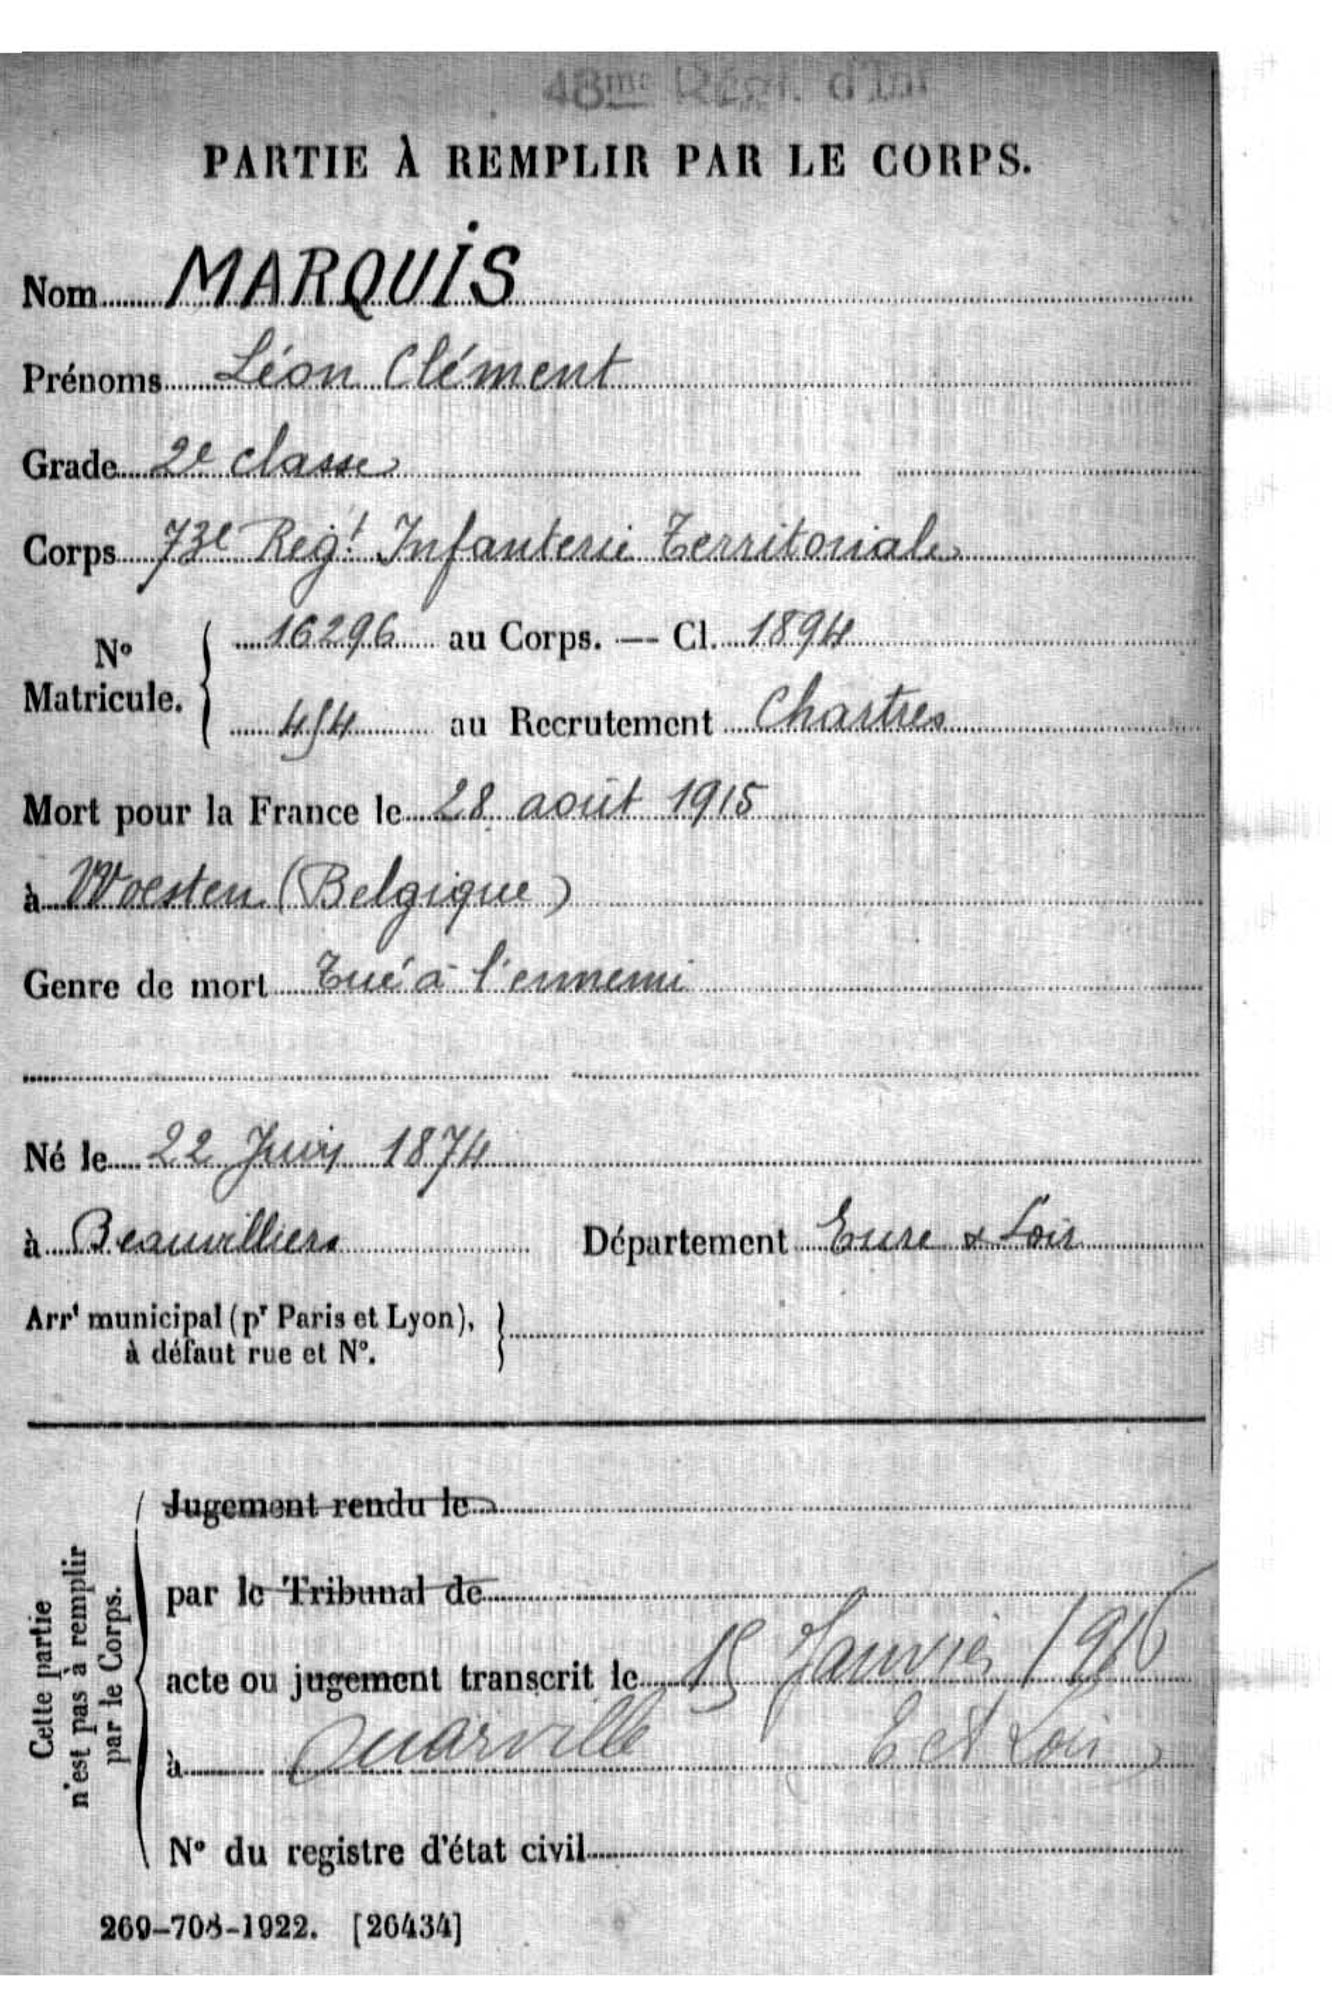 48me Régt. d'Inf
PARTIE À REMPLIR PAR LE CORPS.
Nom MARQUIS
Prénoms Léon Clément
Grade 2e classe
Corps 73e Régt Infanterie Territoriale
No Matricule. 16296 au Corps. — Cl. 1894
454 au Recrutement Chartres
Mort pour la France le 28 août 1915
à Woesten (Belgique)
Genre de mort Tué à l'ennemi
Né le 22 Juin 1874
à Beauvilliers Département Eure & Loir
Arrt municipal (pr Paris et Lyon),
à défaut rue et No.
Cette partie
n'est pas à remplir
par le Corps.
Jugement rendu le
par le Tribunal de
acte ou jugement transcrit le 15 Janvier 1916
à Ouarville E et Loir
No du registre d'état civil
269-708-1922. [26434]